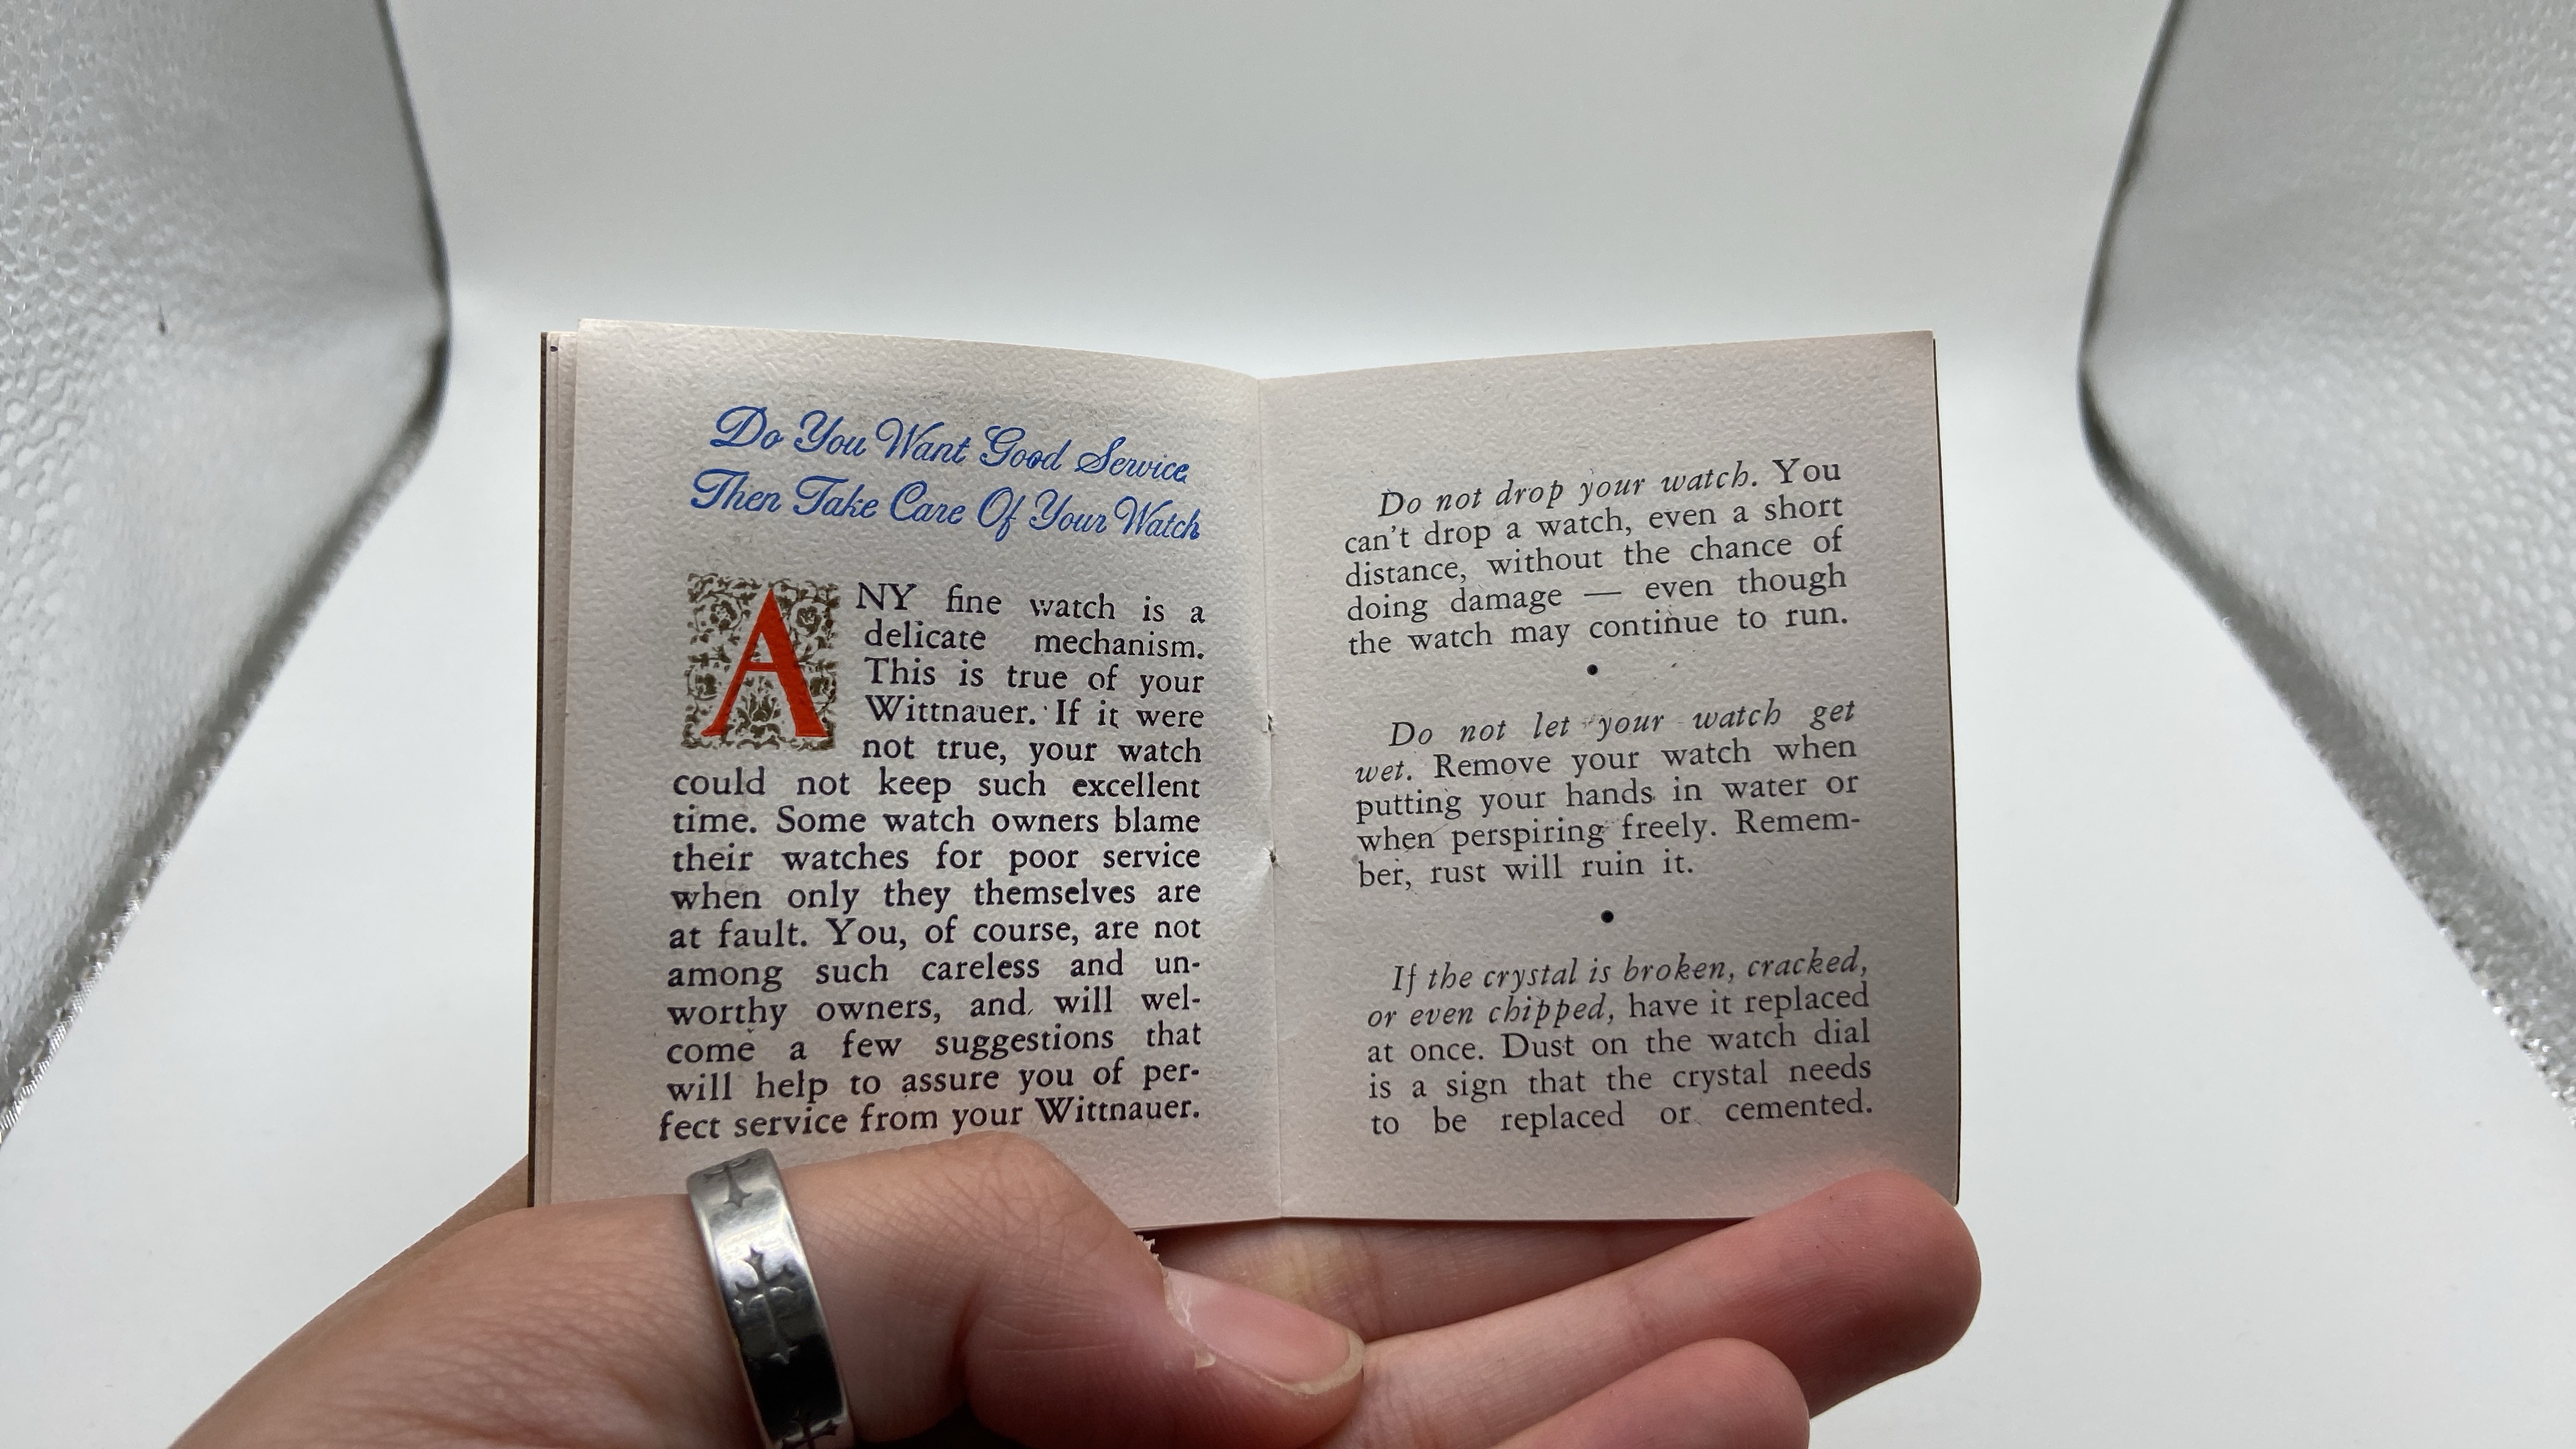 Do You Want Good Service
Then Take Care Of Your Watch
ANY fine watch is a
delicate mechanism.
This is true of your
Wittnauer. If it were
not true, your watch
could not keep such excellent
time. Some watch owners blame
their watches for poor service
when only they themselves are
at fault. You, of course, are not
among such careless and un-
worthy owners, and will wel-
come a few suggestions that
will help to assure you of per-
fect service from your Wittnauer.
Do not drop your watch. You
can't drop a watch, even a short
distance, without the chance of
doing damage — even though
the watch may continue to run.
•
Do not let your watch get
wet. Remove your watch when
putting your hands in water or
when perspiring freely. Remem-
ber, rust will ruin it.
•
If the crystal is broken, cracked,
or even chipped, have it replaced
at once. Dust on the watch dial
is a sign that the crystal needs
to be replaced or cemented.